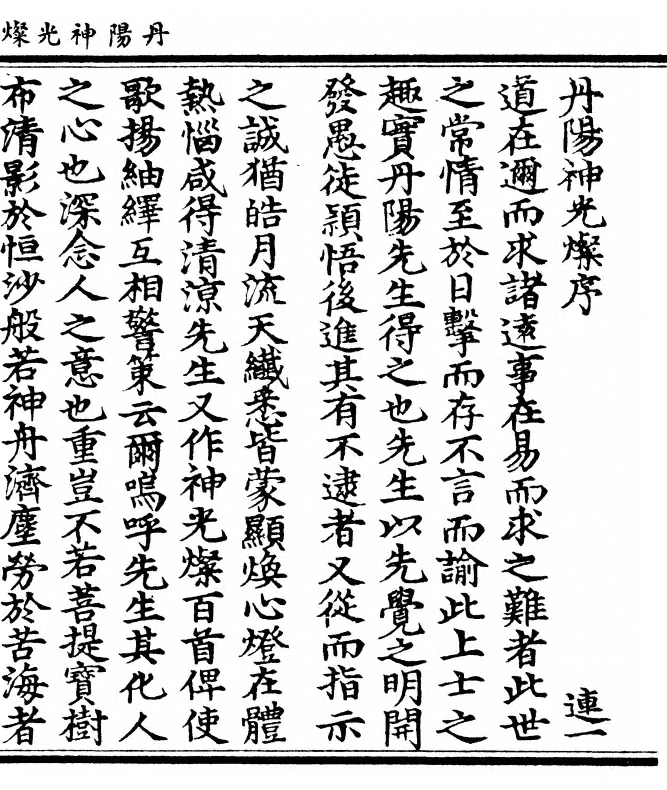 丹陽神光燦
丹陽神光燦序
連一
道在邇而求諸遠事在易而求之難者此世
之常情至於日擊而存不言而諭此上士之
趣實丹陽先生得之也先生以先覺之明開
發愚徒穎悟後進其有不逮者又從而指示
之誠猶皓月流天纖悉皆蒙顯煥心燈在體
熱惱咸得清涼先生又作神光燦百首俾使
歌揚紬繹互相警策云爾嗚呼先生其化人
之心也深念人之意也重豈不若菩提寶樹
布清影於恒沙般若神舟濟塵勞於苦海者